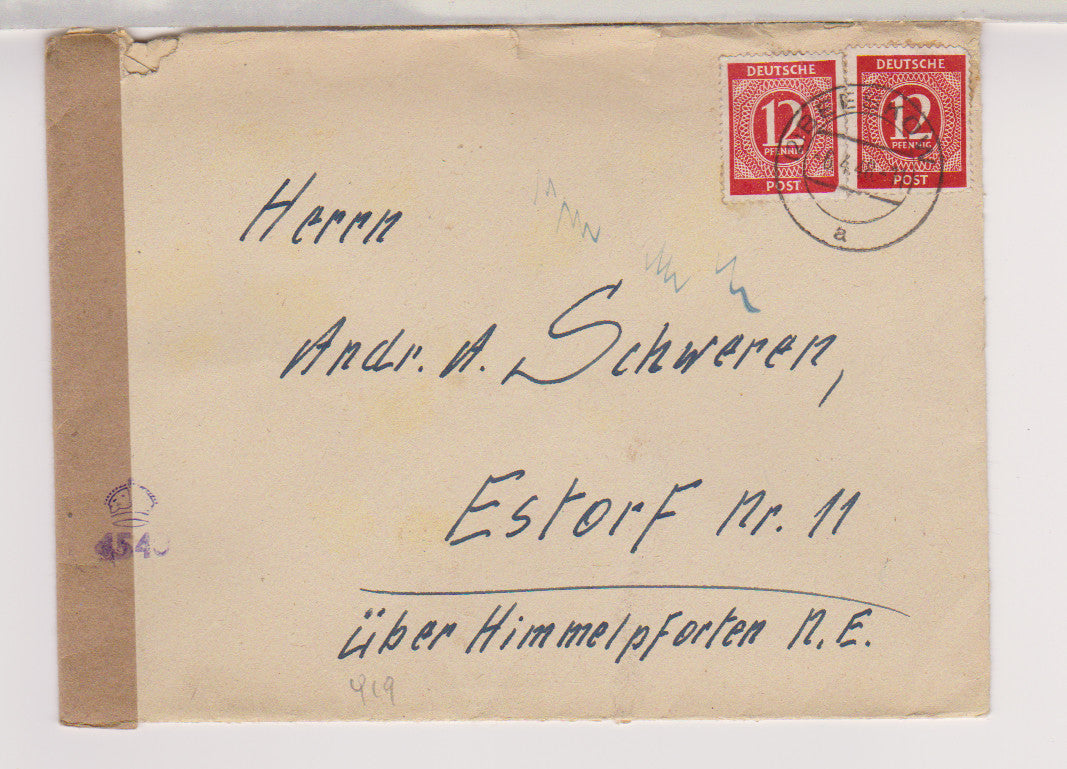 DEUTSCHE
12
PFENNIG
POST
DEUTSCHE
12
PFENNIG
POST
a
Herrn
Andr. A. Schweren,
Estorf Nr. 11
über Himmelpforten N.E.
919